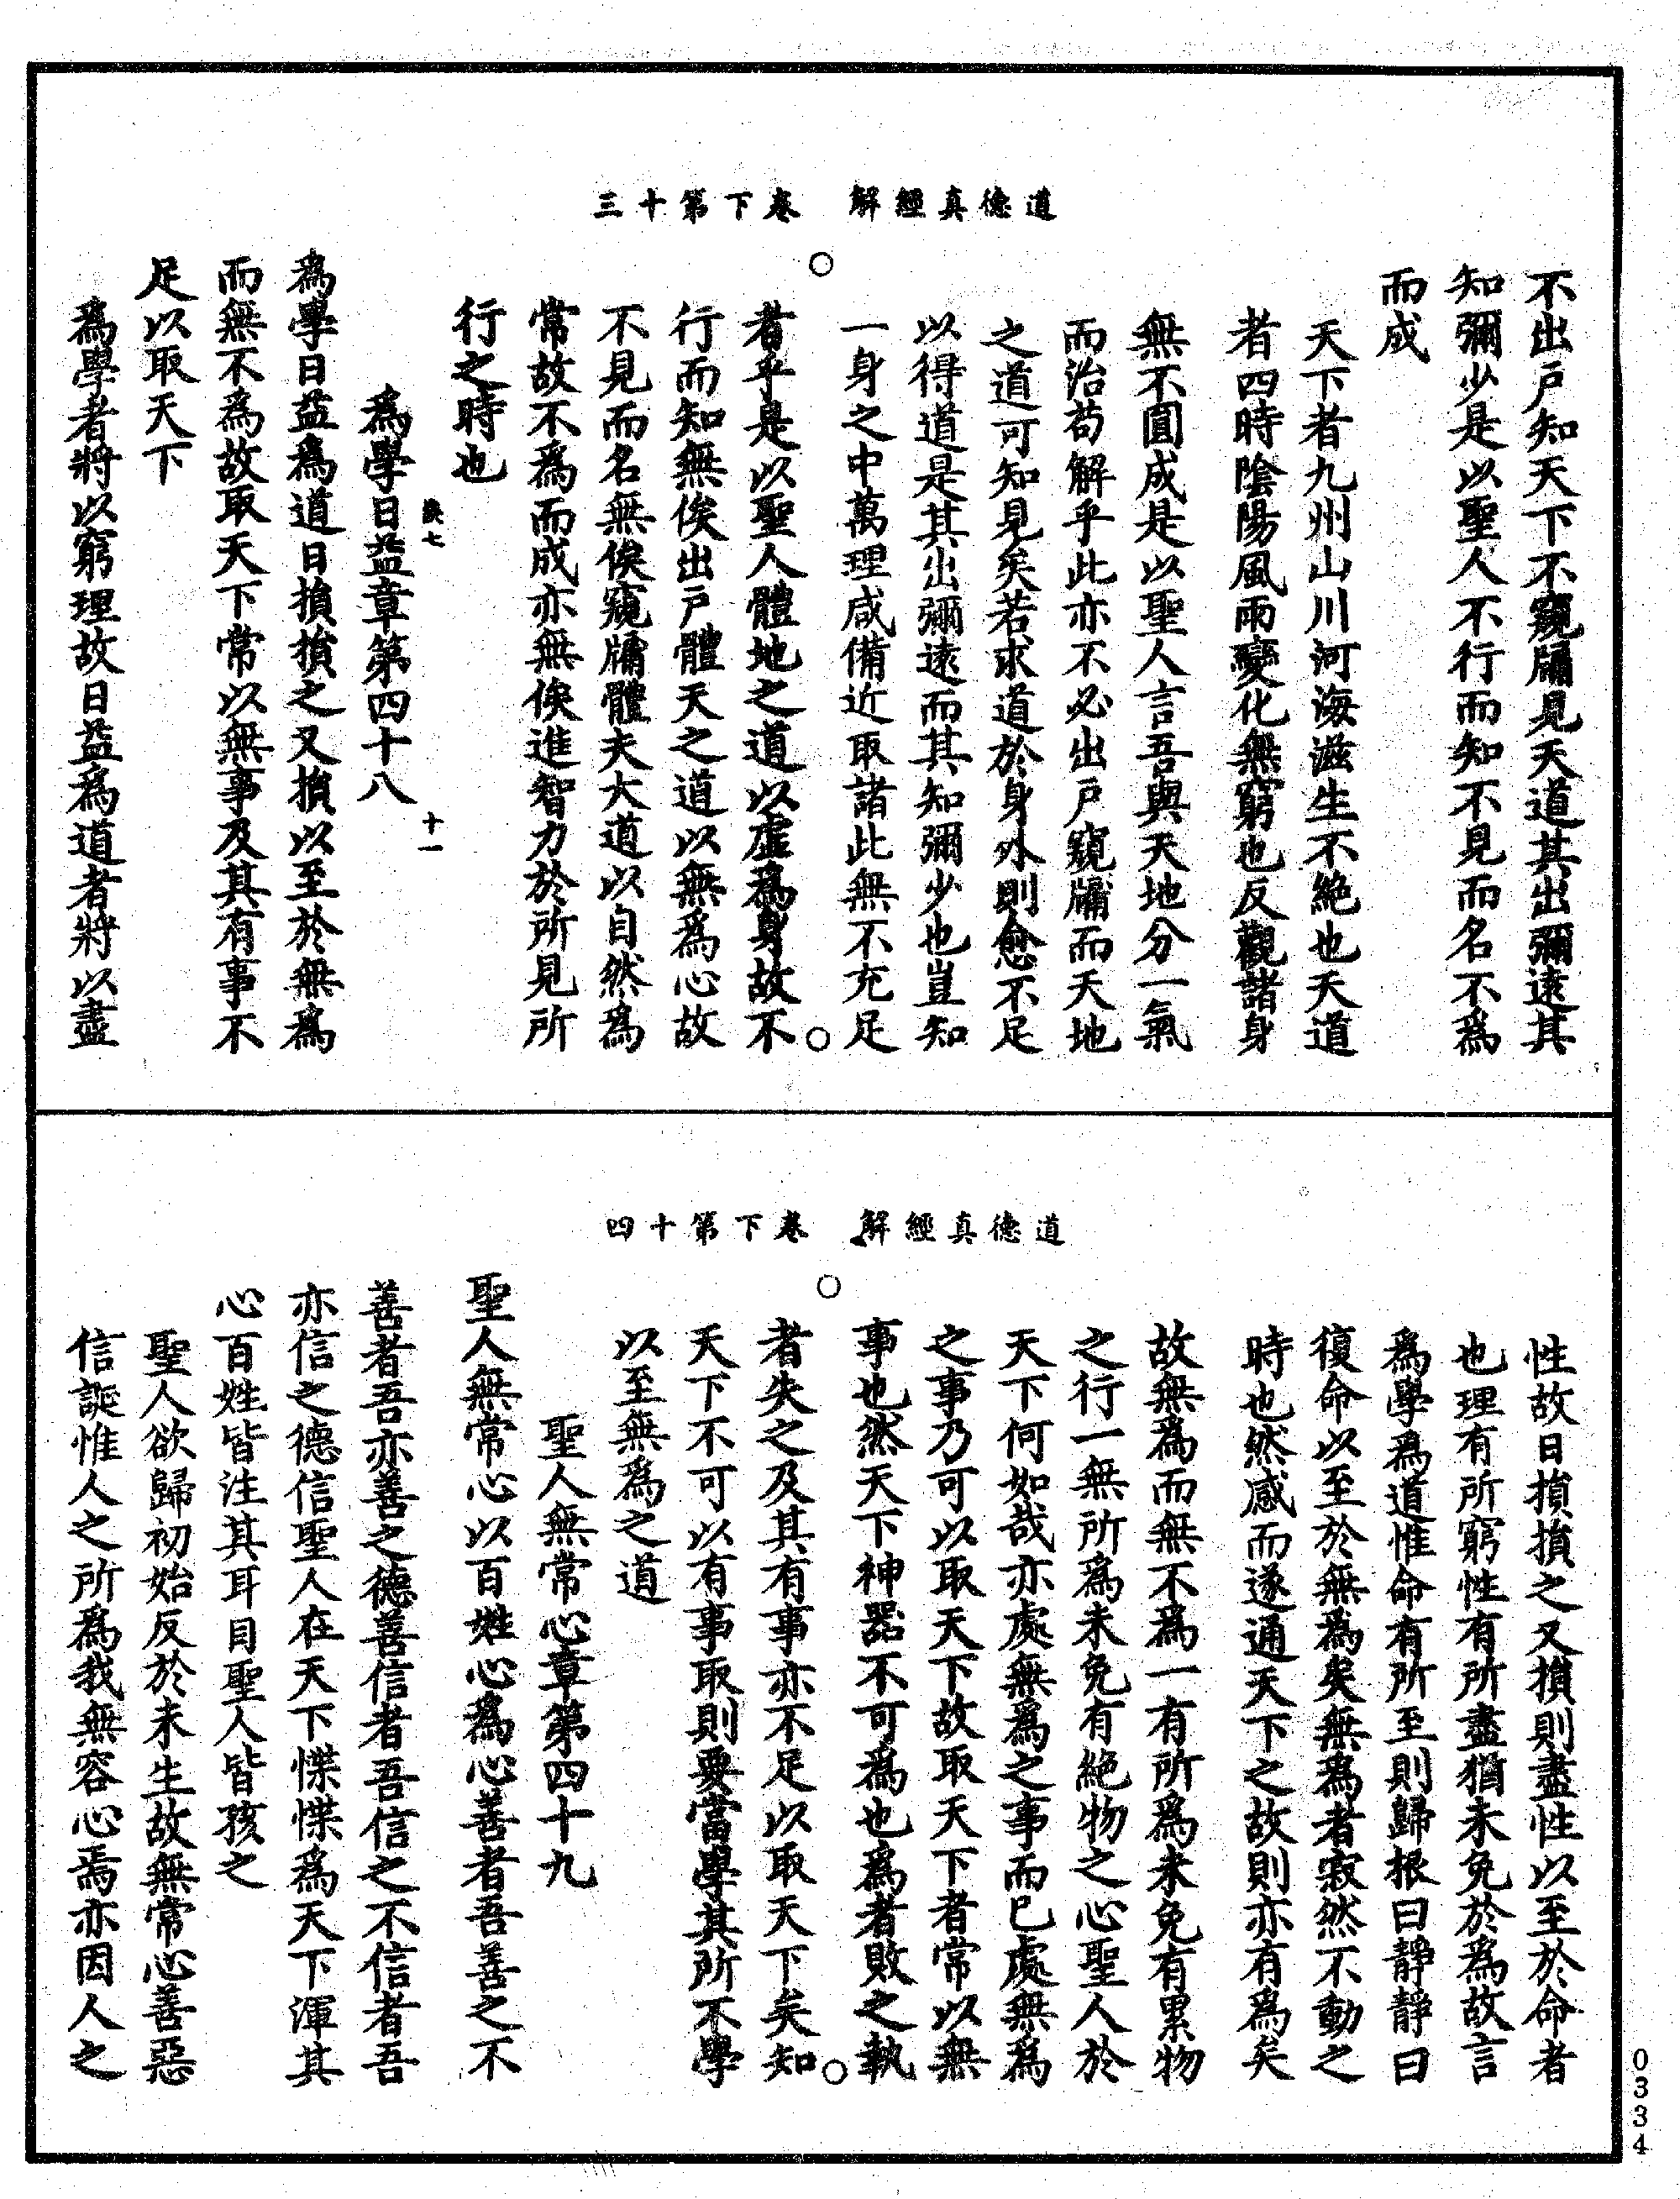 道德真經解　卷下第十三
不出戶知天下不窺牖見天道其出彌遠其
知彌少是以聖人不行而知不見而名不爲
而成
天下者九州山川河海滋生不絶也天道
者四時陰陽風雨變化無窮也反觀諸身
無不圓成是以聖人言吾與天地分一氣
而治苟解乎此亦不必出戶窺牖而天地
之道可知見矣若求道於身外則愈不足
以得道是其出彌遠而其知彌少也豈知
一身之中萬理咸備近取諸此無不充足
者乎是以聖人體地之道以虛爲身故不
行而知無俟出戶體天之道以無爲心故
不見而名無俟窺牖體夫大道以自然爲
常故不爲而成亦無俟進智力於所見所
行之時也
十一
爲學日益章第四十八
爲學日益爲道日損損之又損以至於無爲
而無不爲故取天下常以無事及其有事不
足以取天下
爲學者將以窮理故日益爲道者將以盡
道德真經解　卷下第十四
性故日損損之又損則盡性以至於命者
也理有所窮性有所盡猶未免於爲故言
爲學爲道惟命有所至則歸根曰靜靜曰
復命以至於無爲矣無爲者寂然不動之
時也然感而遂通天下之故則亦有爲矣
故無爲而無不爲一有所爲未免有累物
之行一無所爲未免有絶物之心聖人於
天下何如哉亦處無爲之事而已處無爲
之事乃可以取天下故取天下者常以無
事也然天下神器不可爲也爲者敗之執
者失之及其有事亦不足以取天下矣知
天下不可以有事取則要當學其所不學
以至無爲之道
聖人無常心章第四十九
聖人無常心以百姓心爲心善者吾善之不
善者吾亦善之德善信者吾信之不信者吾
亦信之德信聖人在天下惵惵爲天下渾其
心百姓皆注其耳目聖人皆孩之
聖人欲歸初始反於未生故無常心善惡
信誕惟人之所爲我無容心焉亦因人之
0334